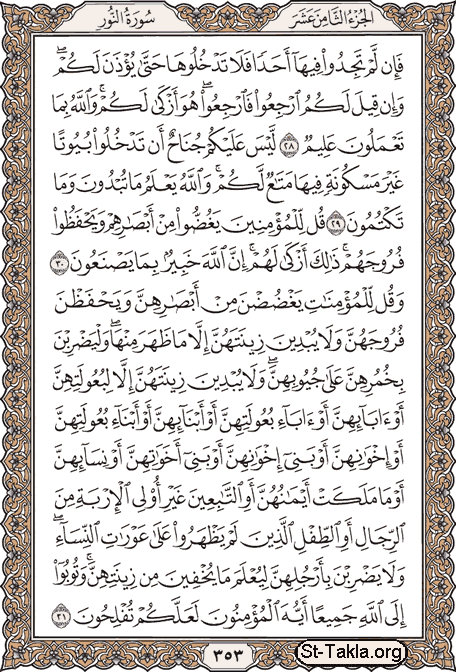 الجزء الثامن عشر
سورة النور
فَإِن لَّمْ تَجِدُوا۟ فِيهَآ أَحَدًا فَلَا تَدْخُلُوهَا حَتَّىٰ يُؤْذَنَ لَكُمْ ۖ
وَإِن قِيلَ لَكُمُ ٱرْجِعُوا۟ فَٱرْجِعُوا۟ ۖ هُوَ أَزْكَىٰ لَكُمْ ۚ وَٱللَّهُ بِمَا
تَعْمَلُونَ عَلِيمٌ ٢٨ لَّيْسَ عَلَيْكُمْ جُنَاحٌ أَن تَدْخُلُوا۟ بُيُوتًا
غَيْرَ مَسْكُونَةٍ فِيهَا مَتَٰعٌ لَّكُمْ ۚ وَٱللَّهُ يَعْلَمُ مَا تُبْدُونَ وَمَا
تَكْتُمُونَ ٢٩ قُل لِّلْمُؤْمِنِينَ يَغُضُّوا۟ مِنْ أَبْصَٰرِهِمْ وَيَحْفَظُوا۟
فُرُوجَهُمْ ۚ ذَٰلِكَ أَزْكَىٰ لَهُمْ ۗ إِنَّ ٱللَّهَ خَبِيرٌۢ بِمَا يَصْنَعُونَ ٣٠
وَقُل لِّلْمُؤْمِنَٰتِ يَغْضُضْنَ مِنْ أَبْصَٰرِهِنَّ وَيَحْفَظْنَ
فُرُوجَهُنَّ وَلَا يُبْدِينَ زِينَتَهُنَّ إِلَّا مَا ظَهَرَ مِنْهَا ۖ وَلْيَضْرِبْنَ
بِخُمُرِهِنَّ عَلَىٰ جُيُوبِهِنَّ ۖ وَلَا يُبْدِينَ زِينَتَهُنَّ إِلَّا لِبُعُولَتِهِنَّ
أَوْ ءَابَآئِهِنَّ أَوْ ءَابَآءِ بُعُولَتِهِنَّ أَوْ أَبْنَآئِهِنَّ أَوْ أَبْنَآءِ بُعُولَتِهِنَّ
أَوْ إِخْوَٰنِهِنَّ أَوْ بَنِىٓ إِخْوَٰنِهِنَّ أَوْ بَنِىٓ أَخَوَٰتِهِنَّ أَوْ نِسَآئِهِنَّ
أَوْ مَا مَلَكَتْ أَيْمَٰنُهُنَّ أَوِ ٱلتَّٰبِعِينَ غَيْرِ أُو۟لِى ٱلْإِرْبَةِ مِنَ
ٱلرِّجَالِ أَوِ ٱلطِّفْلِ ٱلَّذِينَ لَمْ يَظْهَرُوا۟ عَلَىٰ عَوْرَٰتِ ٱلنِّسَآءِ ۖ
وَلَا يَضْرِبْنَ بِأَرْجُلِهِنَّ لِيُعْلَمَ مَا يُخْفِينَ مِن زِينَتِهِنَّ ۚ وَتُوبُوٓا۟
إِلَى ٱللَّهِ جَمِيعًا أَيُّهَ ٱلْمُؤْمِنُونَ لَعَلَّكُمْ تُفْلِحُونَ ٣١
٣٥٣
St-Takla.org